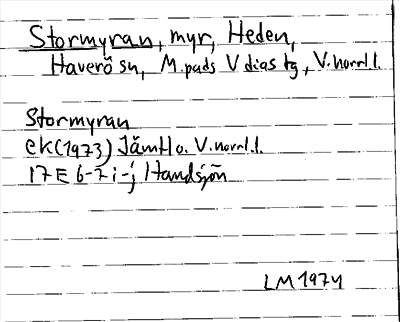 Stormyran, myr, Heden,
Haverö sn, M.pads V djas tg, V.norrl.l.
Stormyran
ek(1973) Jämtl o. V.norrl.l.
17E 6-7 i-j Handsjön
LM 1974